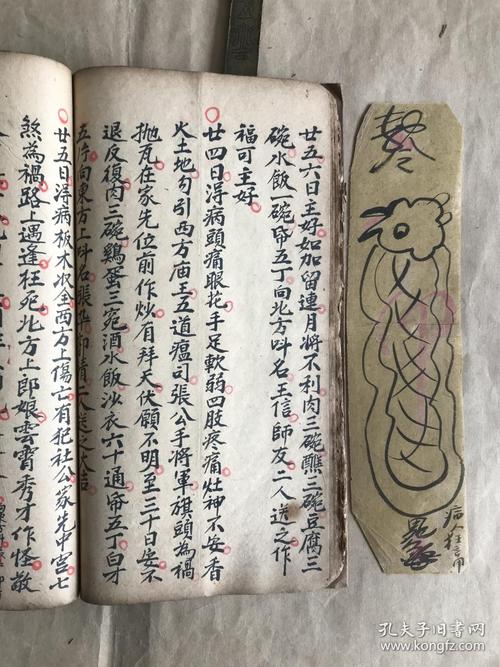 廿五六日主好如加留連月將不利肉三碗醮三碗豆腐三
碗水飯一碗帋五丁向北方呌名王信師友二人送之作
福可主好
廿四日淂病頭痛眼花手足軟弱四肢疼痛灶神不安香
火土地勾引西方庙王五道瘟司張公手將軍旗頭為禍
抛瓦在家先位前作炒有拜天伏願不明至三十日安不
退反復肉三碗鷄蛋三宛酒水飯沙衣六十通帋五丁白牙
五
向東方上呌名張
二人送之大吉
廿五日淂病板木次全西方上傷亡有犯社公家先中宫七
煞為禍路上遇逢枉死北方上郎娘雲霄秀才作怪敬
病人枕言用
孔夫子旧书网
kongfz.com